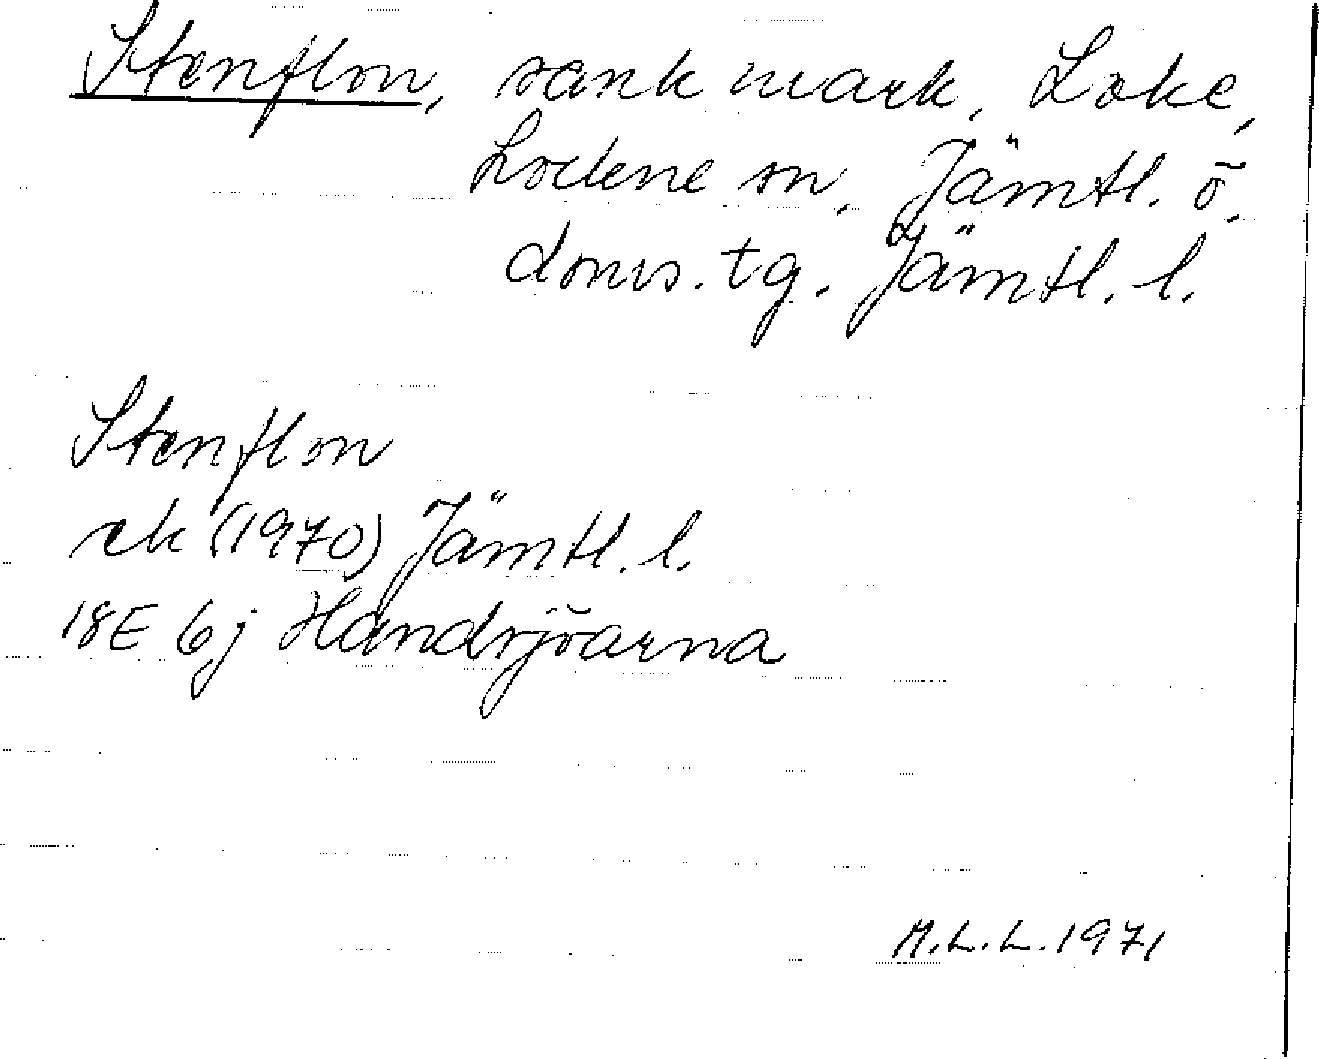 Stenflon, sank mark, Loke,
Lockne sn, Jämtl. ö.
doms. tg. Jämtl. l.
Stenflon
ek (1970) Jämtl. l.
18E 6j Handsjöarna
M.L.L. 1971